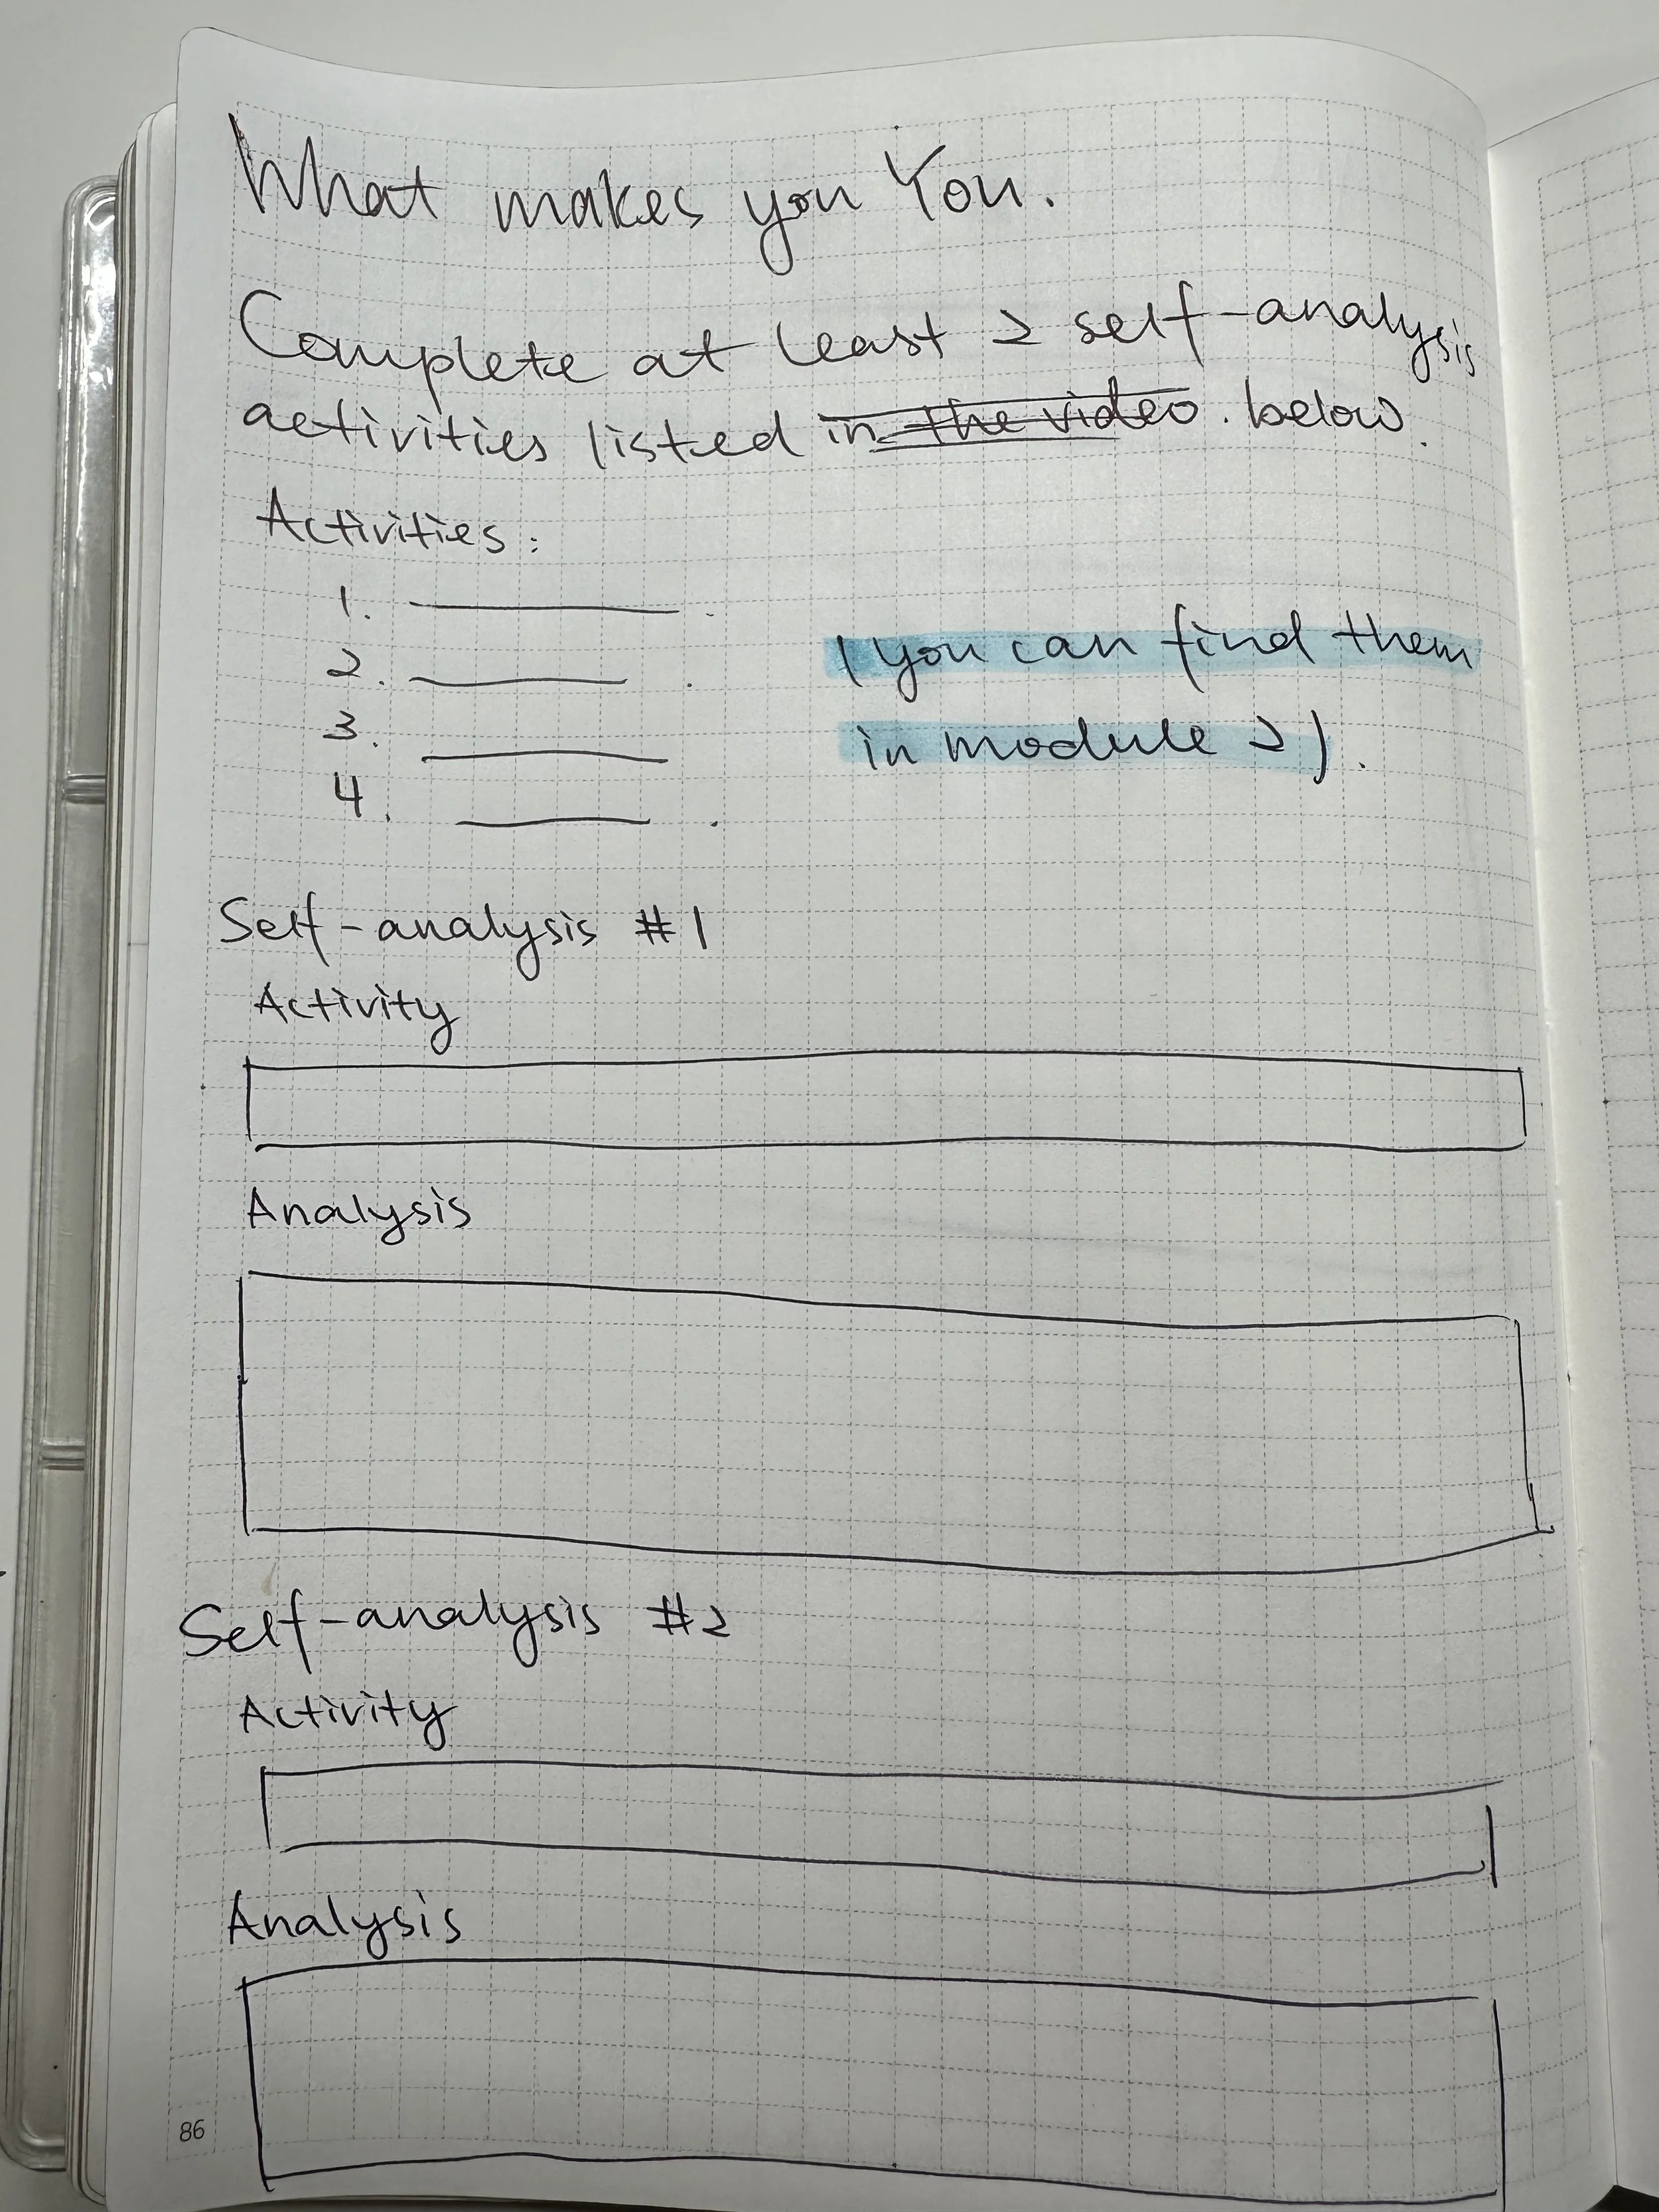 What makes you You.
Complete at least 2 self-analysis
activities listed in the video. below.
Activities:
1. ______.
2. ______.
3. ______
4. ______.
(you can find them
in module 2).
Self-analysis #1
Activity
Analysis
Self-analysis #2
Activity
Analysis
86